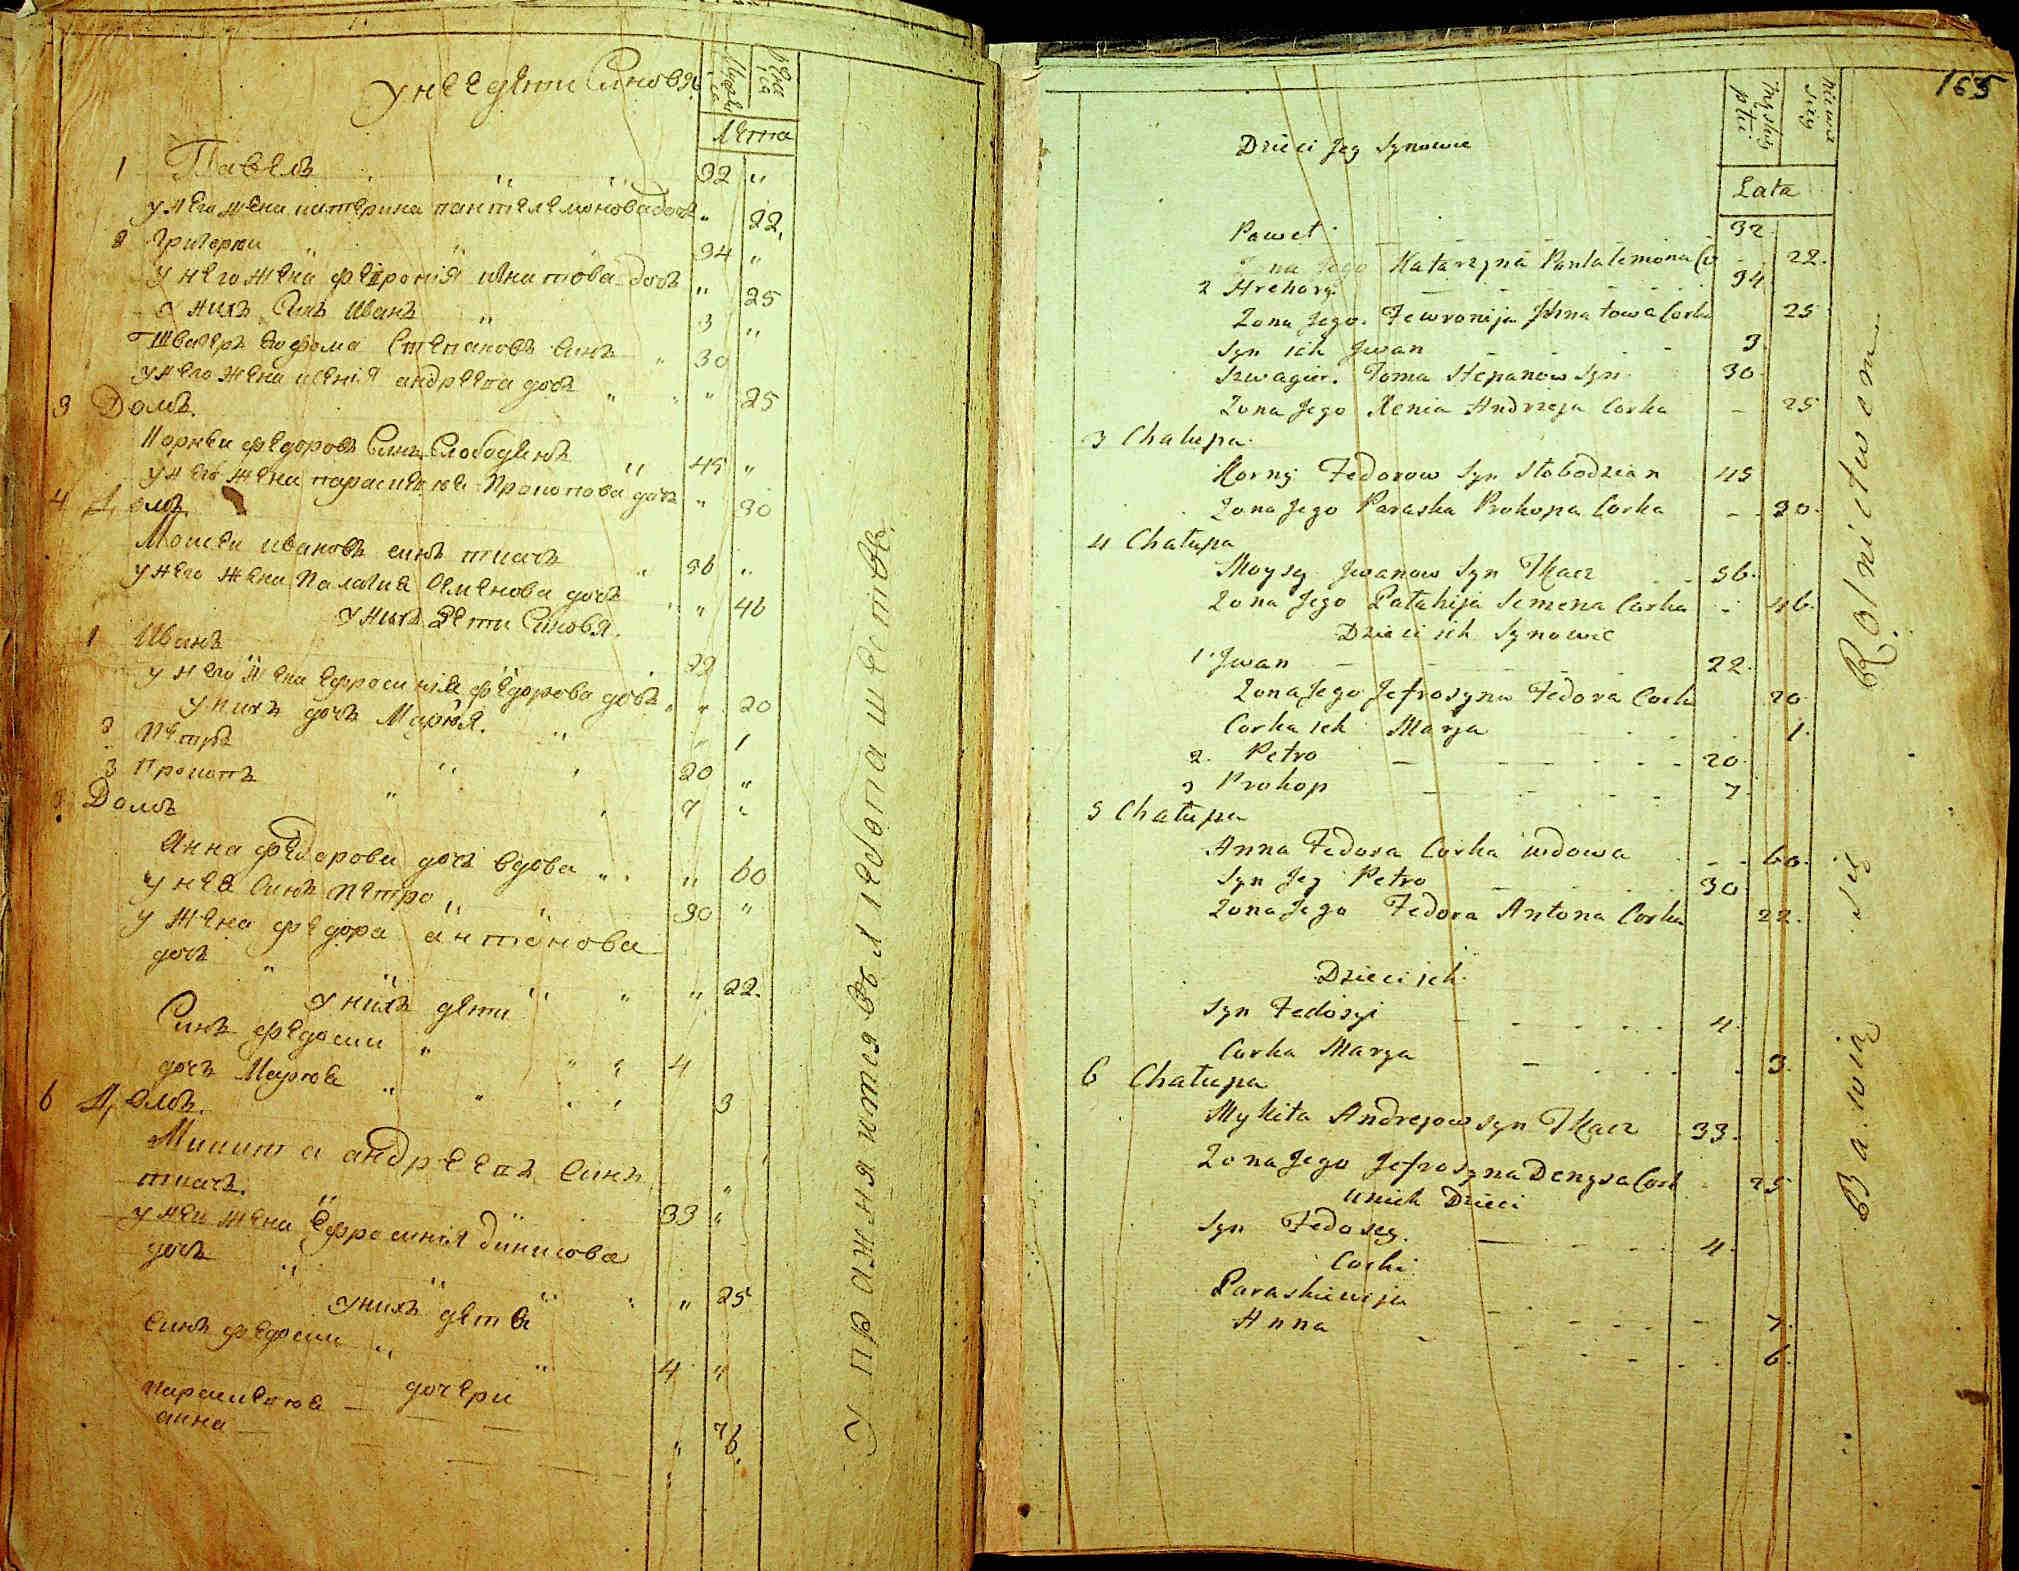 У нее дети Синовя
мужеска
женска
Лета
1 Павелъ 32 "
у него жена катерина пантелемонова дочь " 22
2 Григории 34 "
у него жена февронія игнатова дочь " 25
у нихъ Синъ Иванъ 3 "
швагеръ его фома Степановъ Синъ 30
у него жена ксенія андреева дочь " 25
3 Домъ.
Корнеи федоровъ Синъ Слободенъ 45 "
у него жена параскевія Прокопова дочь " 30
4 Домъ
Моисеи ивановъ синъ ткачъ 56 "
у него жена Палагия Семенова дочь " 46
у нихъ Дети Синовя.
1 Иванъ 22
у него жена ефросинія федорова дочь " 20
у нихъ дочь Марія. " 1
2 Петръ 20 "
3 Прокопъ 7 "
5 Домъ
Анна федорова дочь вдова " 60
у нея Синъ петро 30 "
у жена федора антонова
дочь " 22.
у нихъ дети
Синъ федосии 4
дочь Марія 3
6 Домъ.
Микита андреевъ Синъ
ткачъ. 33 "
у неи жена Ефросинія динисова
дочь " 25
у нихъ дети
Синъ федосии 4 "
дочери
параскевія " 7
анна " 6.
Упражняится в хлебопашестве
165
męskiey płci
niewie sciey
Dzieci Jey Synowie
Lata
Paweł 32
Zona Jego Katarzyna Pantalemona Cor 22.
2 Hrehory 34
Zona Jego. Fewronija Jhnatowa Corka 25
Syn ich Jwan 3
Szwagier. Foma Stepanow Syn 30
Zona Jego Xenia Andrzeja Corka - 25
3 Chałupa
Korny Fedorow Syn Słobodzian 45
Zona Jego Paraska Prokopa Corka - 30.
4 Chałupa
Moysey Jwanow Syn Tkacz 56.
Zona Jego Pałahija Semena Corka - 46.
Dzieci ich Synowie
1. Jwan 22.
Zona Jego Jefrosyna Fedora Corka 20
Corka ich Marya 1.
2. Petro 20.
3 Prokop 7.
5 Chałupa
Anna Fedora Corka wdowa 60.
Syn Jey Petro 30
Zona Jego Fedora Antona Corka 22.
Dzieci ich
Syn Fedosyi 4.
Corka Marya 3.
6 Chałupa
Mykita Andrejow syn Tkacz 33.
Zona Jego Jefrosyna Denysa Cork 25
Unich Dzieci
Syn Fedosey. 4.
Corki
Paraskiewija 7.
Anna 6.
Bawią się Rolnictwem